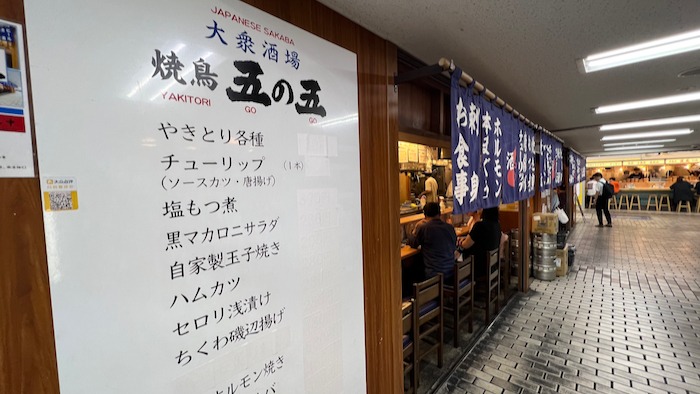 JAPANESE SAKABA
大衆酒場
焼鳥 五の五
YAKITORI GO GO
やきとり各種
チューリップ (1本)
(ソースカツ・唐揚げ)
塩もつ煮
黒マカロニサラダ
自家製玉子焼き
ハムカツ
セロリ浅漬け
ちくわ磯辺揚げ
ホルモン焼き
お食事
刺身
本日の
ホルモン
酒